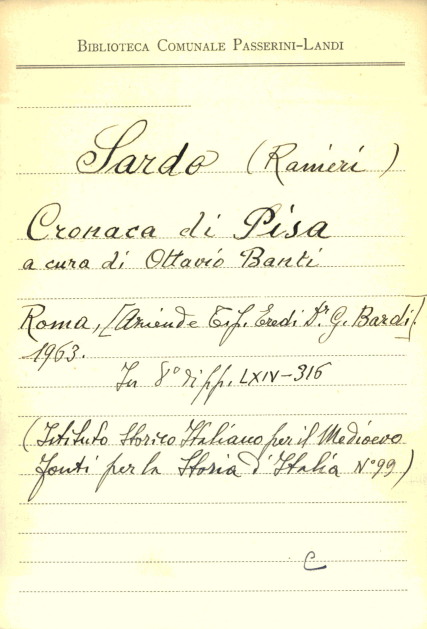 BIBLIOTECA COMUNALE PASSERINI-LANDI
Sardo (Ranieri)
Cronaca di Pisa
a cura di Ottavio Banti
Roma, [Aziende Tip. Eredi Dr G. Bardi].
1963.
In 8° di pp. LXIV-316
(Istituto Storico Italiano per il Medioevo
Fonti per la Storia d'Italia N° 99)
C